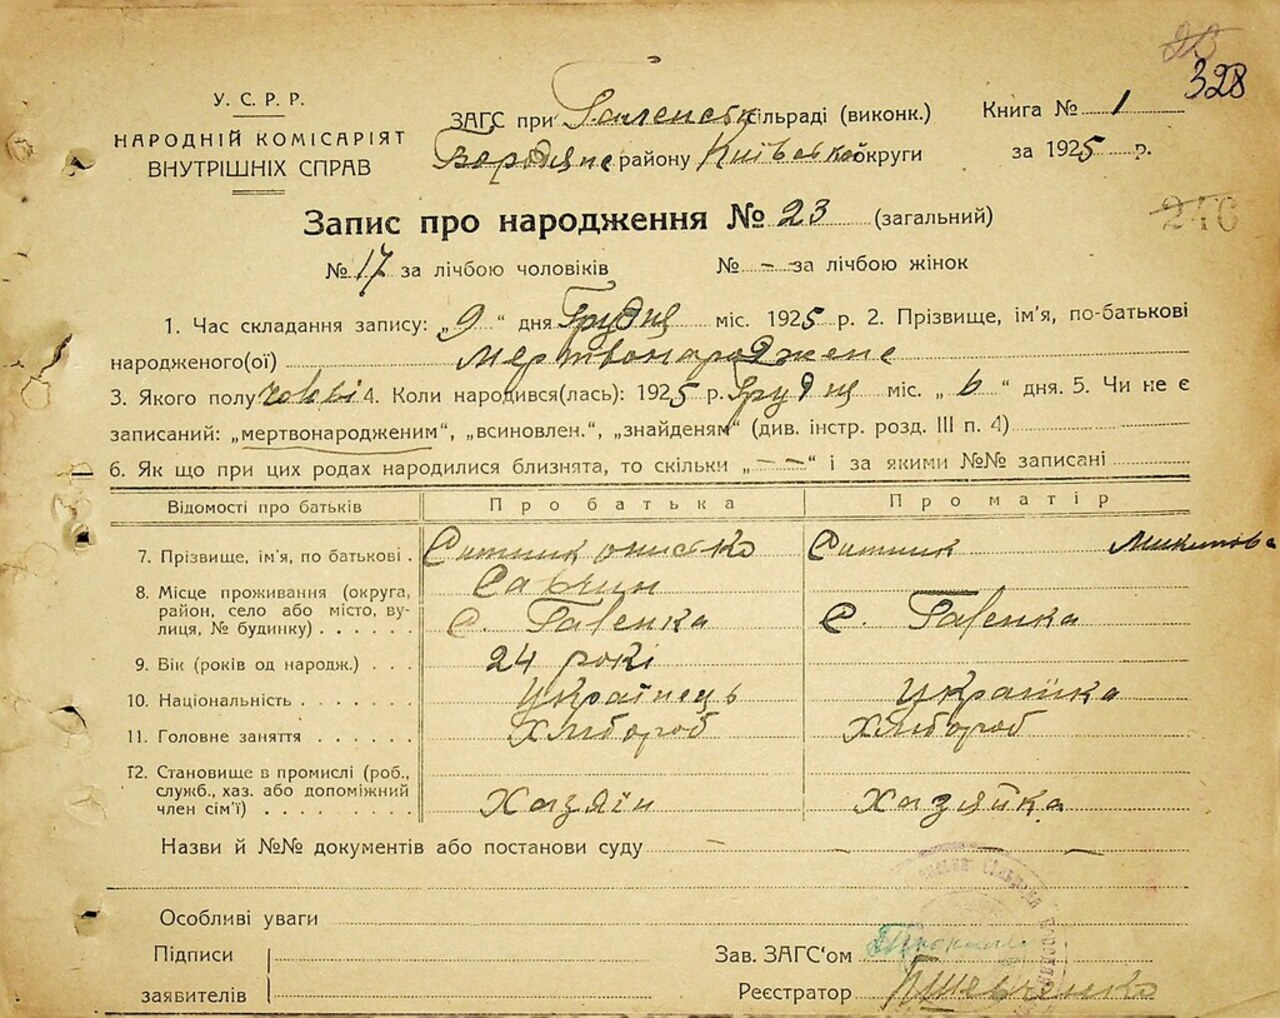 328
У. С. Р. Р.
НАРОДНІЙ КОМІСАРІЯТ
ВНУТРІШНІХ СПРАВ
ЗАГС при сільраді (виконк.)
району Київської округи
Книга № 1
за 1925 р.
Запис про народження № 23 (загальний)
246
№ 17 за лічбою чоловіків № – за лічбою жінок
1. Час складання запису: „9“ дня Грудня міс. 1925 р. 2. Прізвище, ім'я, по-батькові
народженого(ої) мертвонароджене
3. Якого полу чолові 4. Коли народився(лась): 1925 р. Грудня міс. „6“ дня. 5. Чи не є
записаний: „мертвонародженим“, „всиновлен.“, „знайденям“ (див. інстр. розд. III п. 4)
6. Як що при цих родах народилися близнята, то скільки „– –“ і за якими №№ записані
Відомості про батьків Про батька Про матір
7. Прізвище, ім'я, по батькові . Ситник Ситник
8. Місце проживання (округа,
район, село або місто, ву-
лиця, № будинку) . . . . . . С. Галенка С. Галенка
9. Вік (років од народж.) . . . 24 рокі
10. Національність . . . . . . . Українець Українка
11. Головне заняття . . . . . . Хлібороб Хлібороб
12. Становище в промислі (роб.,
служб., хаз. або допоміжний
член сім'ї) . . . . . . . . . Хазяїн Хазяйка
Назви й №№ документів або постанови суду – – –
Особливі уваги
Підписи
заявителів
Зав. ЗАГС'ом
Реєстратор Шевченко